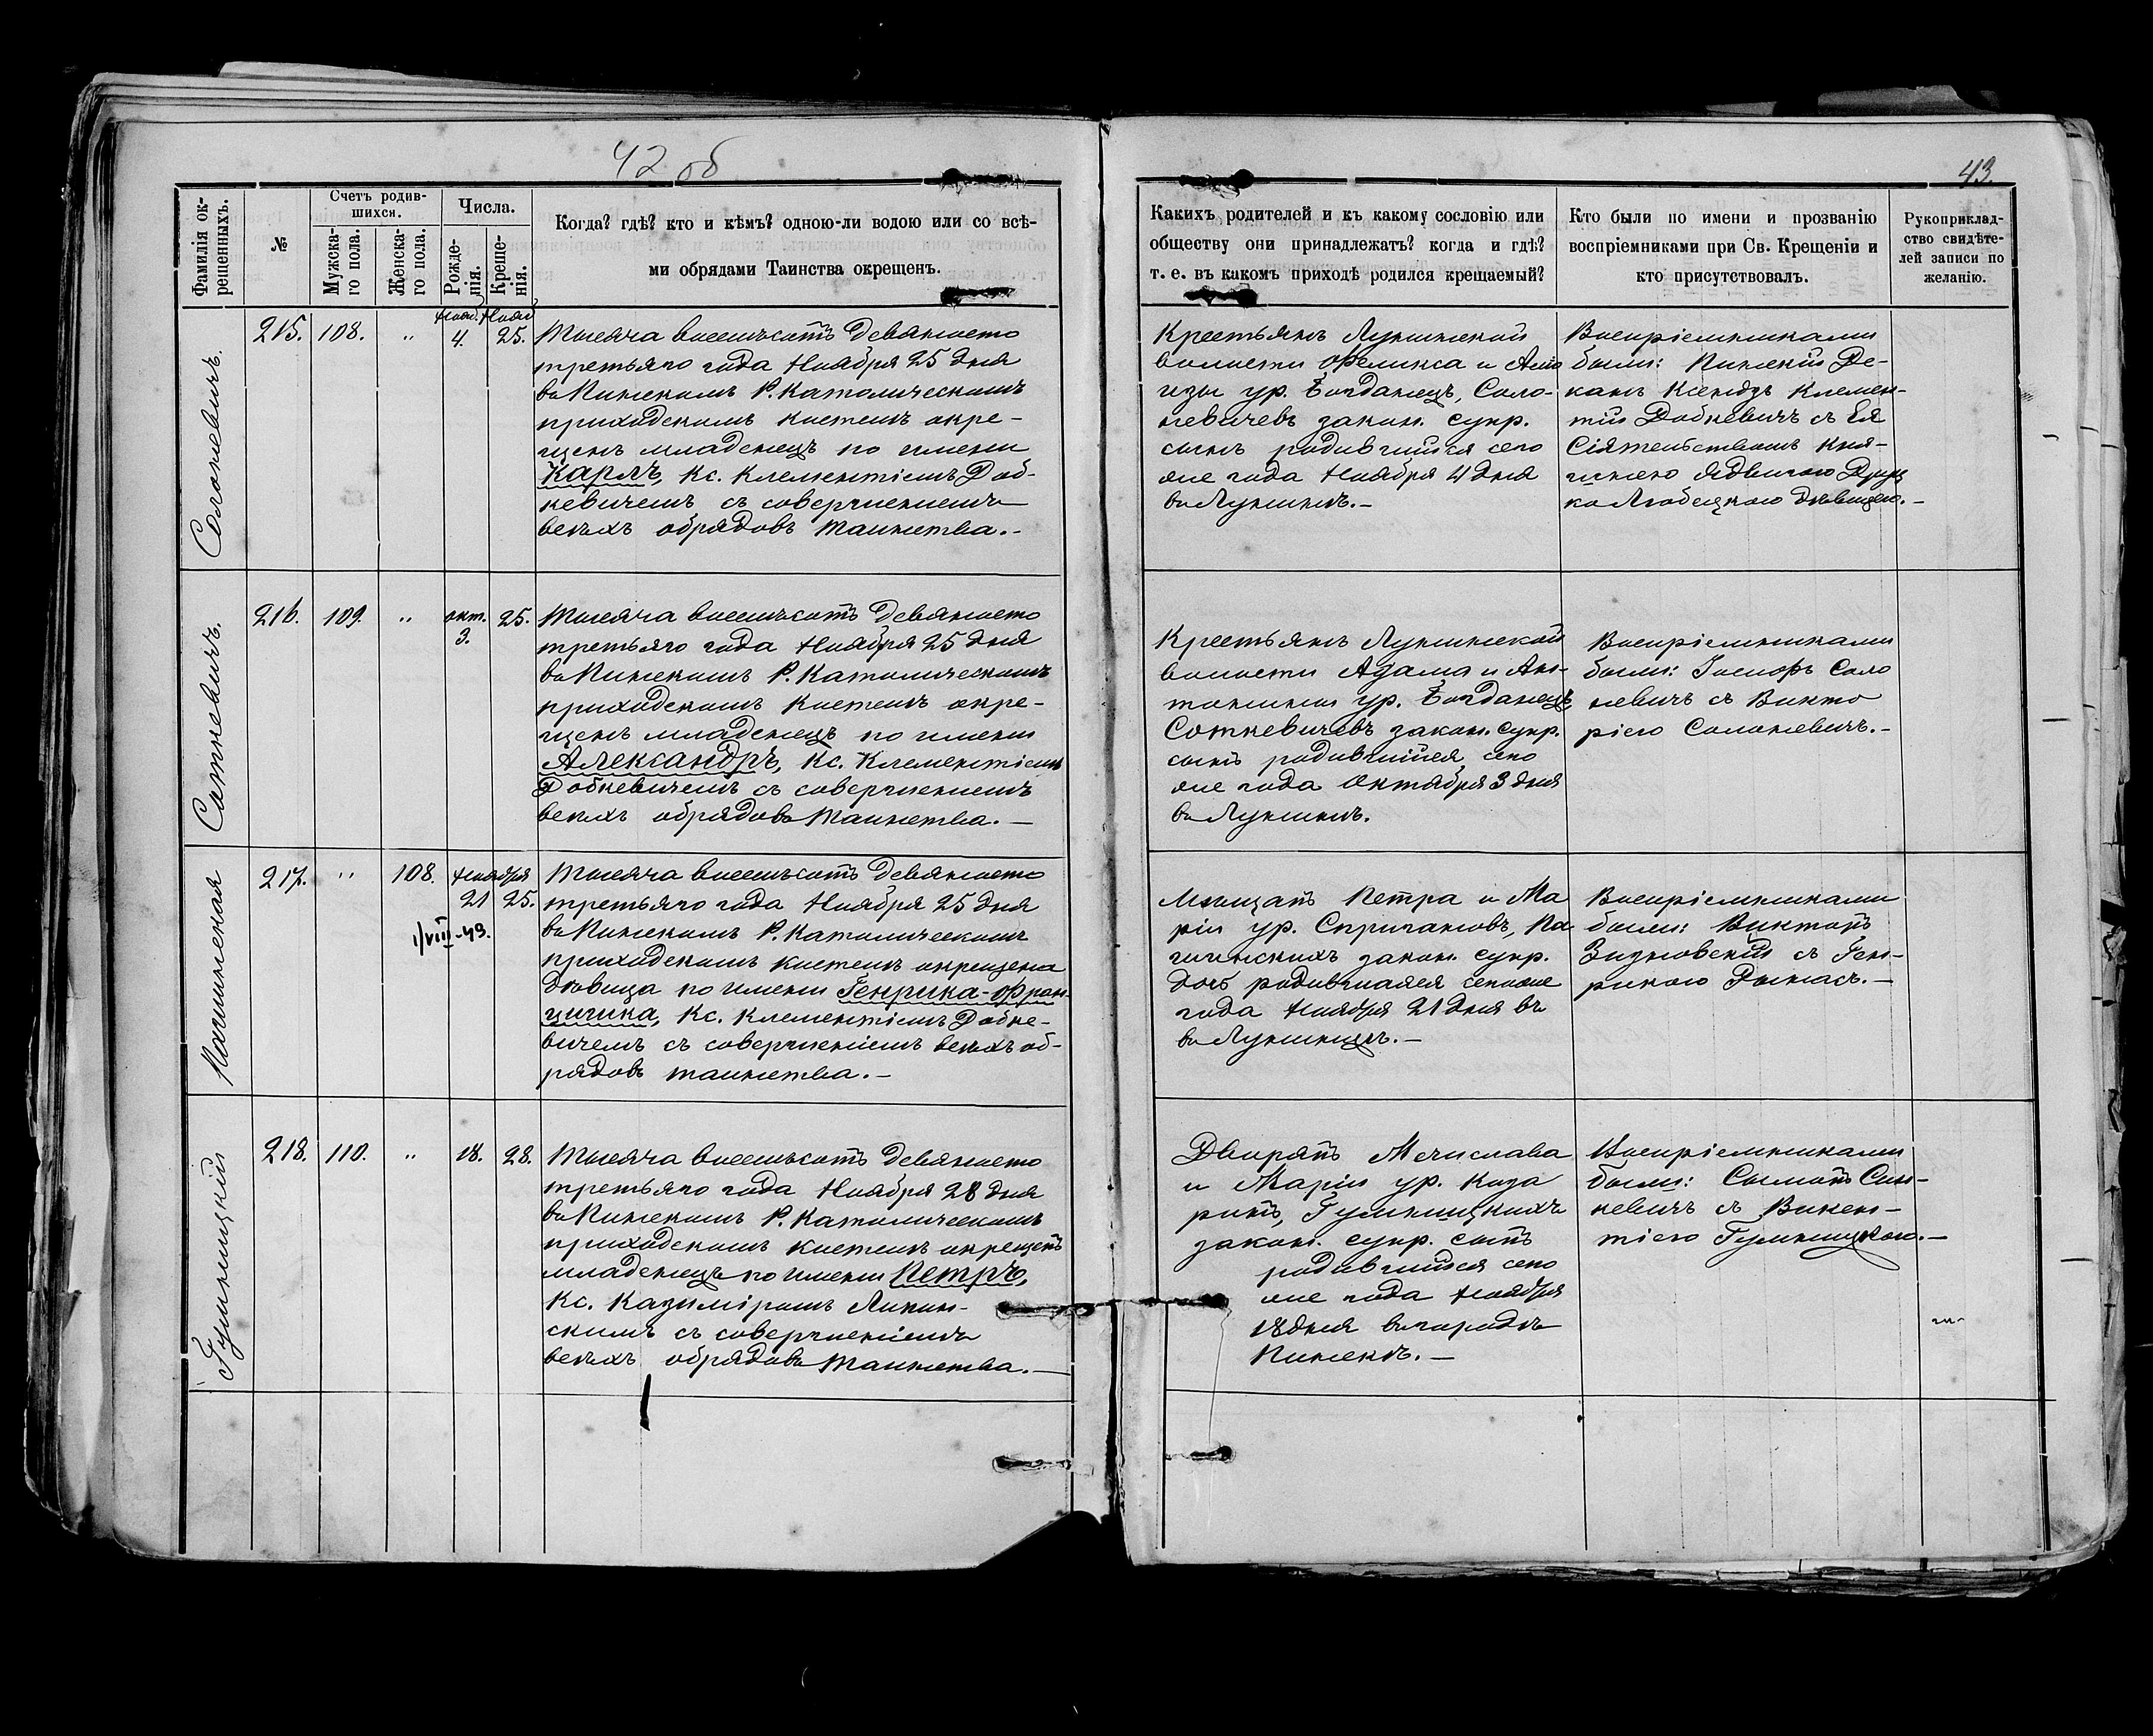 42 об
43.
Фамилія ок-
рещенныхъ.
№
Счетъ родив-
шихся.
Мужска-
го пола.
Женска-
го пола.
Числа.
Рожде-
нія.
Креще-
нія.
Когда? гдѣ? кто и кѣмъ? одною-ли водою или со всѣ-
ми обрядами Таинства окрещенъ.
Какихъ родителей и къ какому сословію или
обществу они принадлежатъ? когда и гдѣ?
т. е. въ какомъ приходѣ родился крещаемый?
Кто были по имени и прозванію
воспріемниками при Св. Крещеніи и
кто присутствовалъ.
Рукоприклад-
ство свидѣте-
лей записи по
желанію.
Солоневичъ.
215.
108.
"
Нояб.
4.
Нояб
25.
Тысяча восемьсотъ девяносто
третьяго года Ноября 25 дня
въ Пинскомъ Р. Католическомъ
приходскомъ костелѣ окре-
щенъ младенецъ по имени
Карлъ, Кс. Клементіемъ Доб-
кевичемъ съ совершеніемъ
всѣхъ обрядовъ таинства.-
Крестьянъ Лунинской
волости Феликса и Ало
изы ур. Богданецъ, Соло-
невичевъ закон. супр.
сынъ родившійся сего
же года Ноября 4 дня
въ Лунинѣ.-
Воспріемниками
были: Пинскій Де-
канъ Ксендзъ Клемен-
тій Добкевичъ съ Ея
Сіятельствомъ Кня-
жною Ядвигою Друц
ко Любецкою дѣвицею.-
Соткевичъ.
216.
109.
"
окт.
3.
25.
Тысяча восемьсотъ девяносто
третьяго года Ноября 25 дня
въ Пинскомъ Р. Католическомъ
приходскомъ костелѣ окре-
щенъ младенецъ по имени
Александръ, Кс. Клементіемъ
Добкевичемъ съ совершеніемъ
всѣхъ обрядовъ таинства.-
Крестьянъ Лунинской
волости Адама и Ан-
тонины ур. Богданецъ
Соткевичевъ закон. супр.
сынъ родившійся сего
же года Октября 3 дня
въ Лунинѣ.
Воспріемниками
были: Іосифъ Соло
невичъ съ Викто
ріею Солоневичъ.-
217.
"
108.
Ноября
21
25.
1/VIII-43.
Тысяча восемьсотъ девяносто
третьяго года Ноября 25 дня
въ Пинскомъ Р. Католическомъ
приходскомъ костелѣ окрещена
дѣвица по имени Генрика-Фран-
цишка, Кс. Клементіемъ Добке-
вичемъ съ совершеніемъ всѣхъ об-
рядовъ таинства.-
Мѣщанъ Петра и Ма
ріи ур.
закон. супр.
дочь родившаяся сего же
года Ноября 21 дня въ
въ Лунинцѣ.-
Воспріемниками
были: Викторъ
съ Ген-
рикою
Гумницкій
218.
110.
"
18.
28.
Тысяча восемьсотъ девяносто
третьяго года Ноября 28 дня
въ Пинскомъ Р. Католическомъ
приходскомъ костелѣ окрещенъ
младенецъ по имени Петръ,
Кс. Казиміромъ Липин-
скимъ съ совершеніемъ
всѣхъ обрядовъ таинства.-
Дворянъ Мечислава
и Маріи ур. Каза
ринъ, Гумницкихъ
закон. супр. сынъ
родившійся сего
же года Ноября
18 дня въ городѣ
Пинскѣ.-
Воспріемниками
были:
съ Викен-
тіею Гумницкою.-